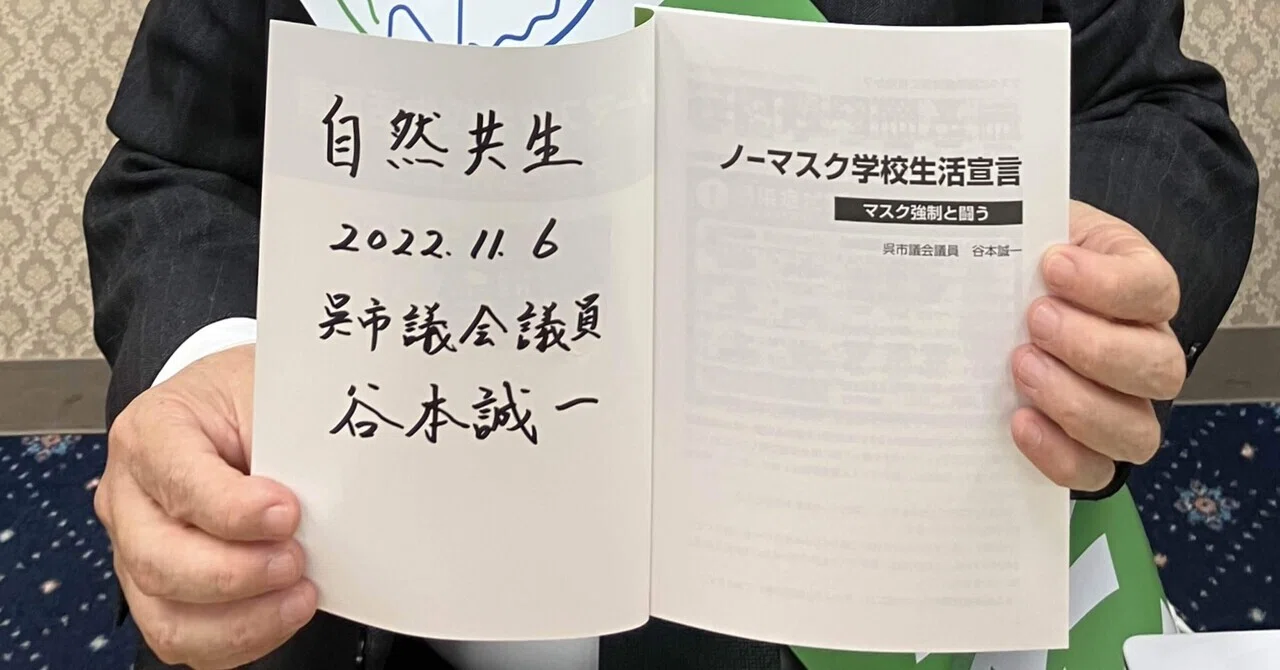 自然共生
2022.11.6
呉市議会議員
谷本誠一
ノーマスク学校生活宣言
マスク強制と闘う
呉市議会議員 谷本誠一